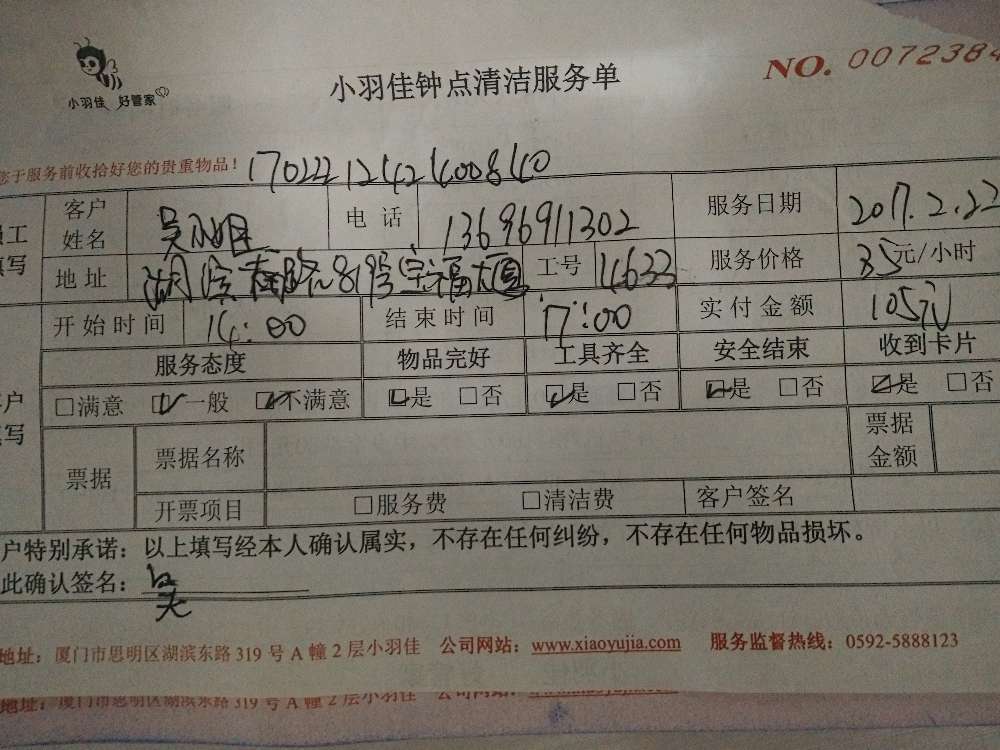 小羽佳 好管家
小羽佳钟点清洁服务单
NO. 0072384
您于服务前收拾好您的贵重物品！ 170222124242400840
员工填写
客户姓名 吴 电话 13696911302 服务日期 2017.2.22
地址 湖滨南路819号宝福大厦 工号 14633 服务价格 35元/小时
开始时间 14:00 结束时间 17:00 实付金额 105元
服务态度 物品完好 工具齐全 安全结束 收到卡片
客户填写
□满意 ☑一般 ☑不满意 ☑是 □否 ☑是 □否 ☑是 □否 ☑是 □否
票据 票据名称 票据金额
开票项目 □服务费 □清洁费 客户签名
户特别承诺：以上填写经本人确认属实，不存在任何纠纷，不存在任何物品损坏。
此确认签名： 吴
地址：厦门市思明区湖滨东路 319 号 A 幢 2 层小羽佳 公司网站：www.xiaoyujia.com 服务监督热线：0592-5888123
地址：厦门市思明区湖滨东路 319 号 A 幢 2 层小羽佳 公司网站：www.xiaoyujia.com